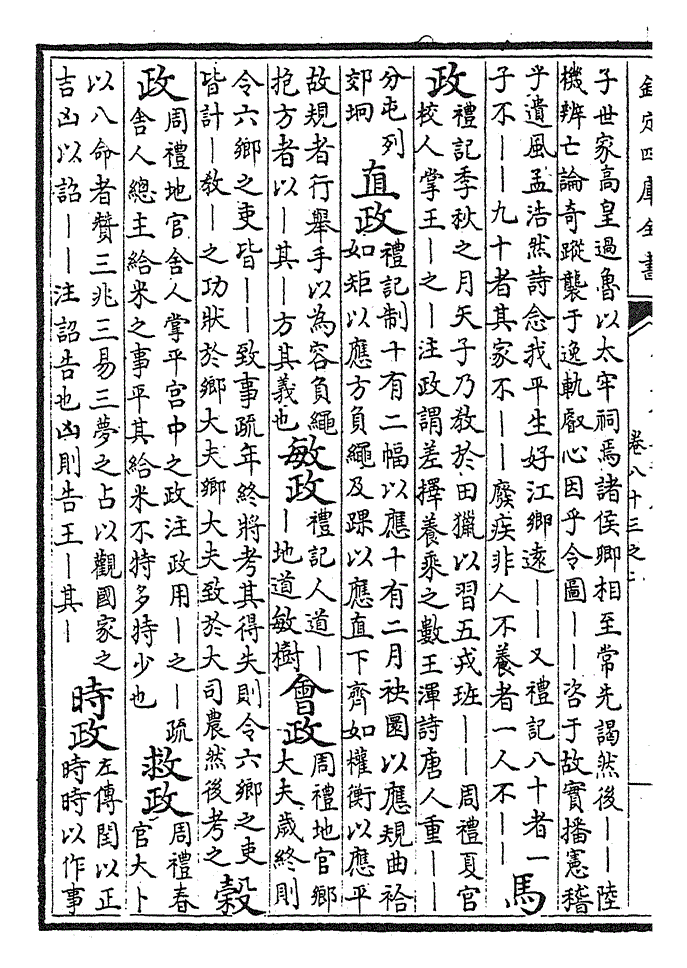 欽定四庫全書
子世家高皇過魯以太牢祠焉諸侯卿相至常先謁然後——陸
機辨亡論奇蹤襲于逸軌叡心因乎令圖——咨于故實播憲稽
乎遺風孟浩然詩念我平生好江鄉遠——又禮記八十者一
子不——九十者其家不——廢疾非人不養者一人不——
馬
政
禮記季秋之月天子乃教於田獵以習五戎班——周禮夏官
校人掌王—之—注政謂差擇養乘之數王渾詩唐人重——
分屯列
郊坰
直政
禮記制十有二幅以應十有二月袂圜以應規曲袷
如矩以應方負繩及踝以應直下齊如權衡以應平
故規者行舉手以為容負繩
抱方者以—其—方其義也
敏政
禮記人道—
—地道敏樹
會政
周禮地官鄉
大夫歲終則
令六鄉之吏皆——致事疏年終將考其得失則令六鄉之吏
皆計—教—之功狀於鄉大夫鄉大夫致於大司農然後考之
穀
政
周禮地官舍人掌平宮中之政注政用—之—疏
舍人總主給米之事平其給米不特多特少也
救政
周禮春
官大卜
以八命者贊三兆三易三夢之占以觀國家之
吉凶以詔——注詔告也凶則告王—其—
時政
左傳閏以正
時時以作事